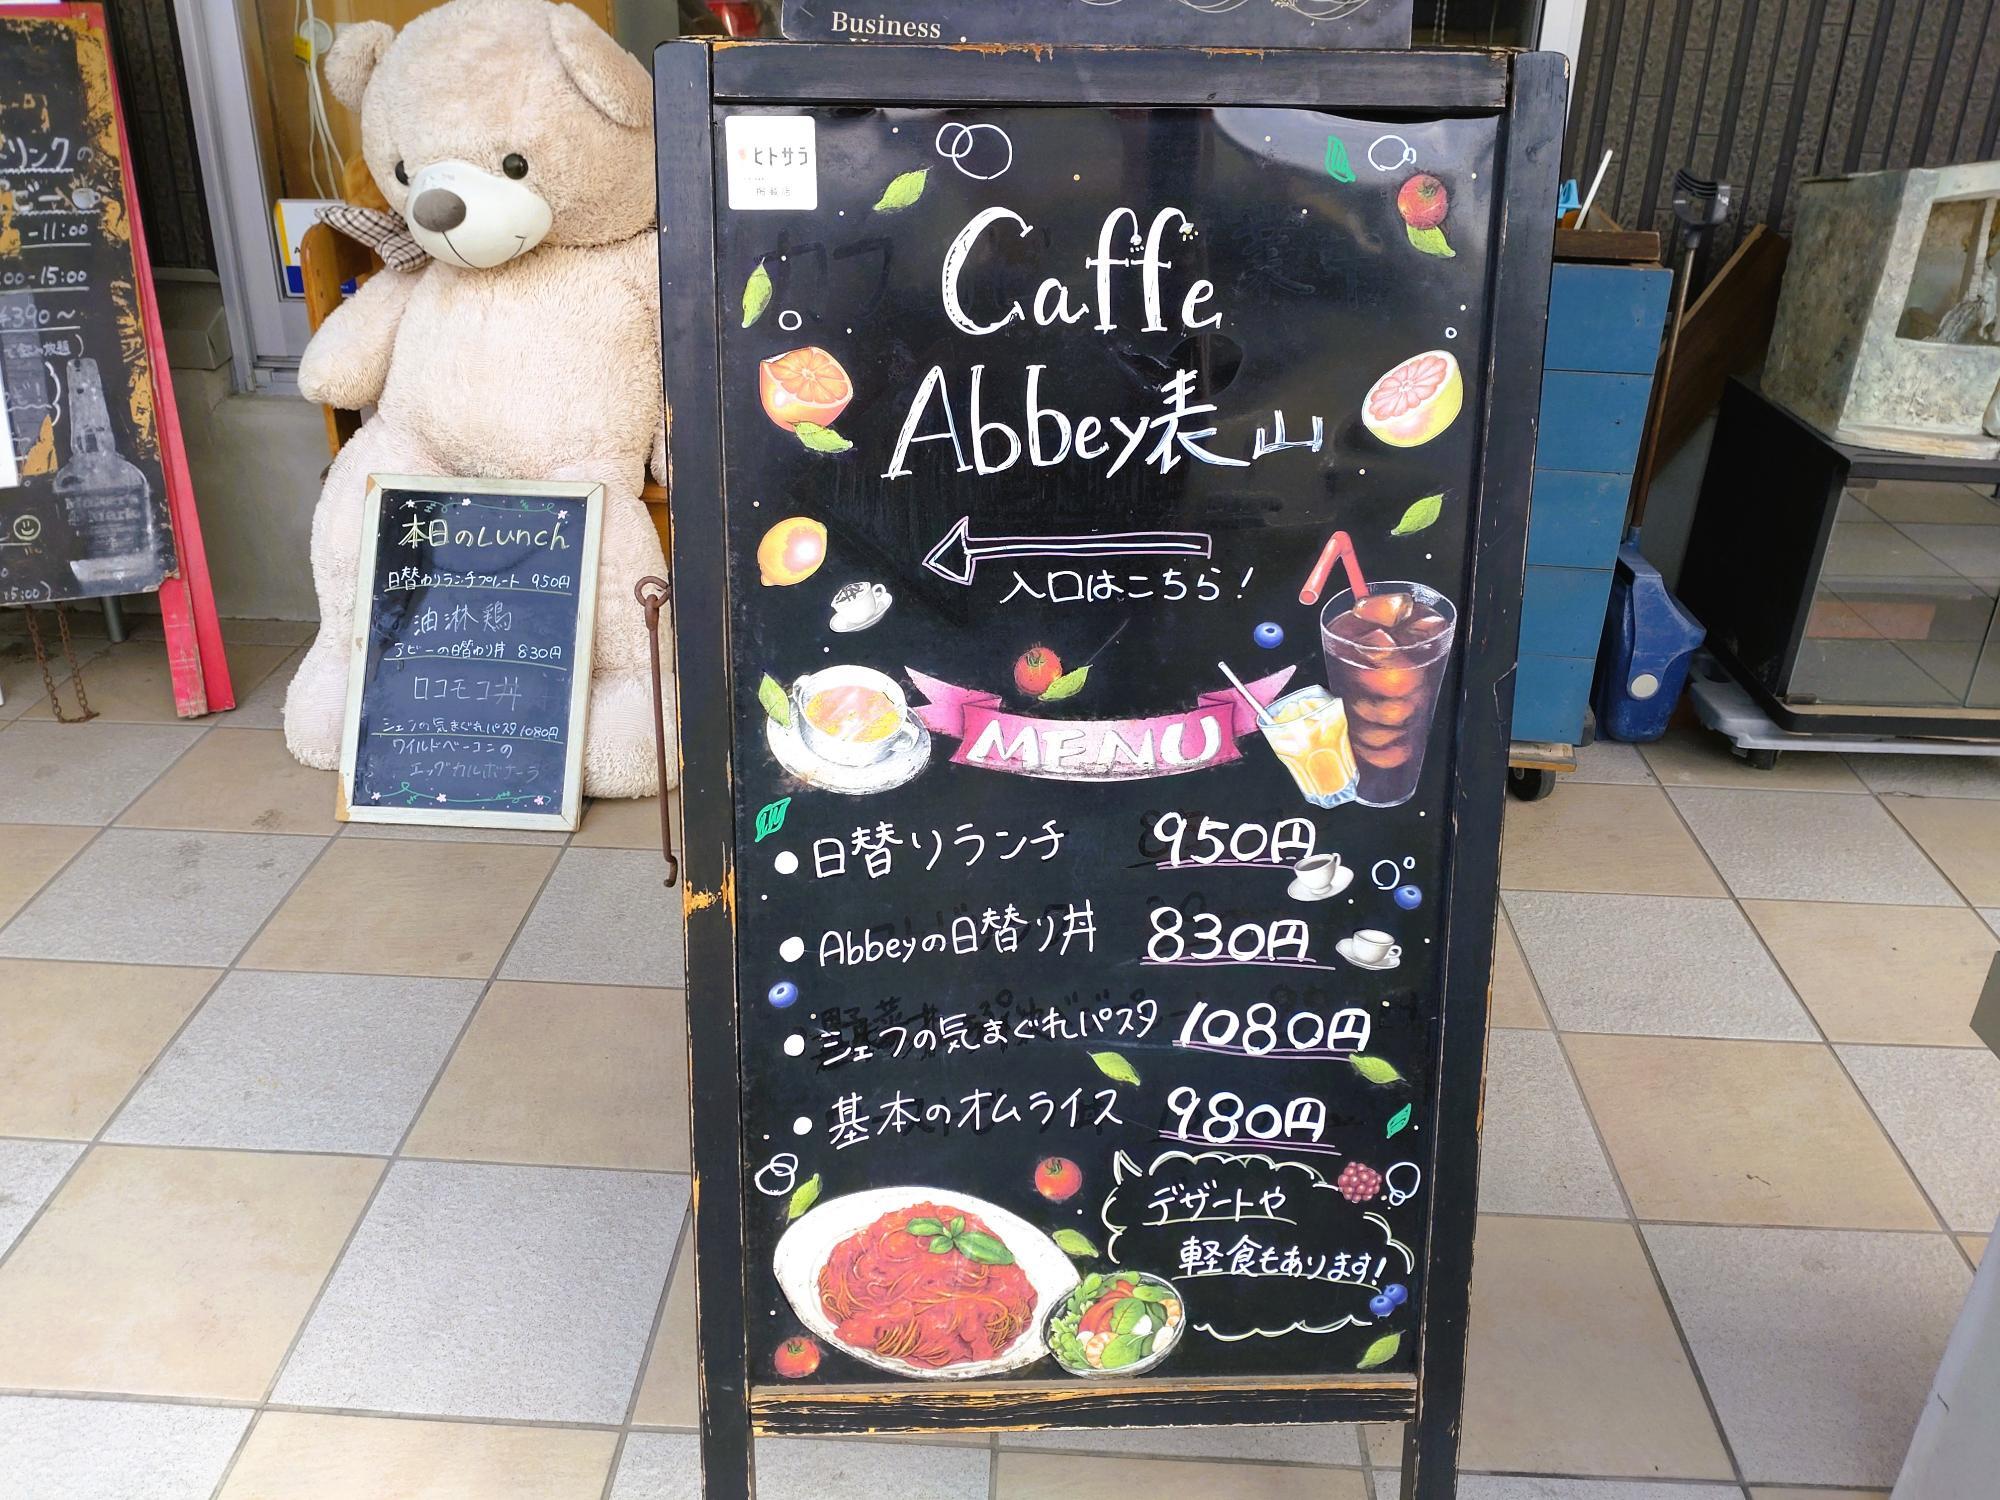 Business
ヒトサラ
掲載店
Caffe
Abbey表山
入口はこちら！
MENU
日替りランチ 950円
Abbeyの日替り丼 830円
シェフの気まぐれパスタ 1080円
基本のオムライス 980円
デザートや
軽食もあります!
本日のLunch
日替わりランチプレート 950円
油淋鶏
アビーの日替わり丼 830円
ロコモコ丼
シェフの気まぐれパスタ 1080円
ワイルドベーコンの
エッグカルボナーラ
リンクの
-11:00
:00-15:00
¥390～
で飲み放題)
Maker's
Mark
15:00)